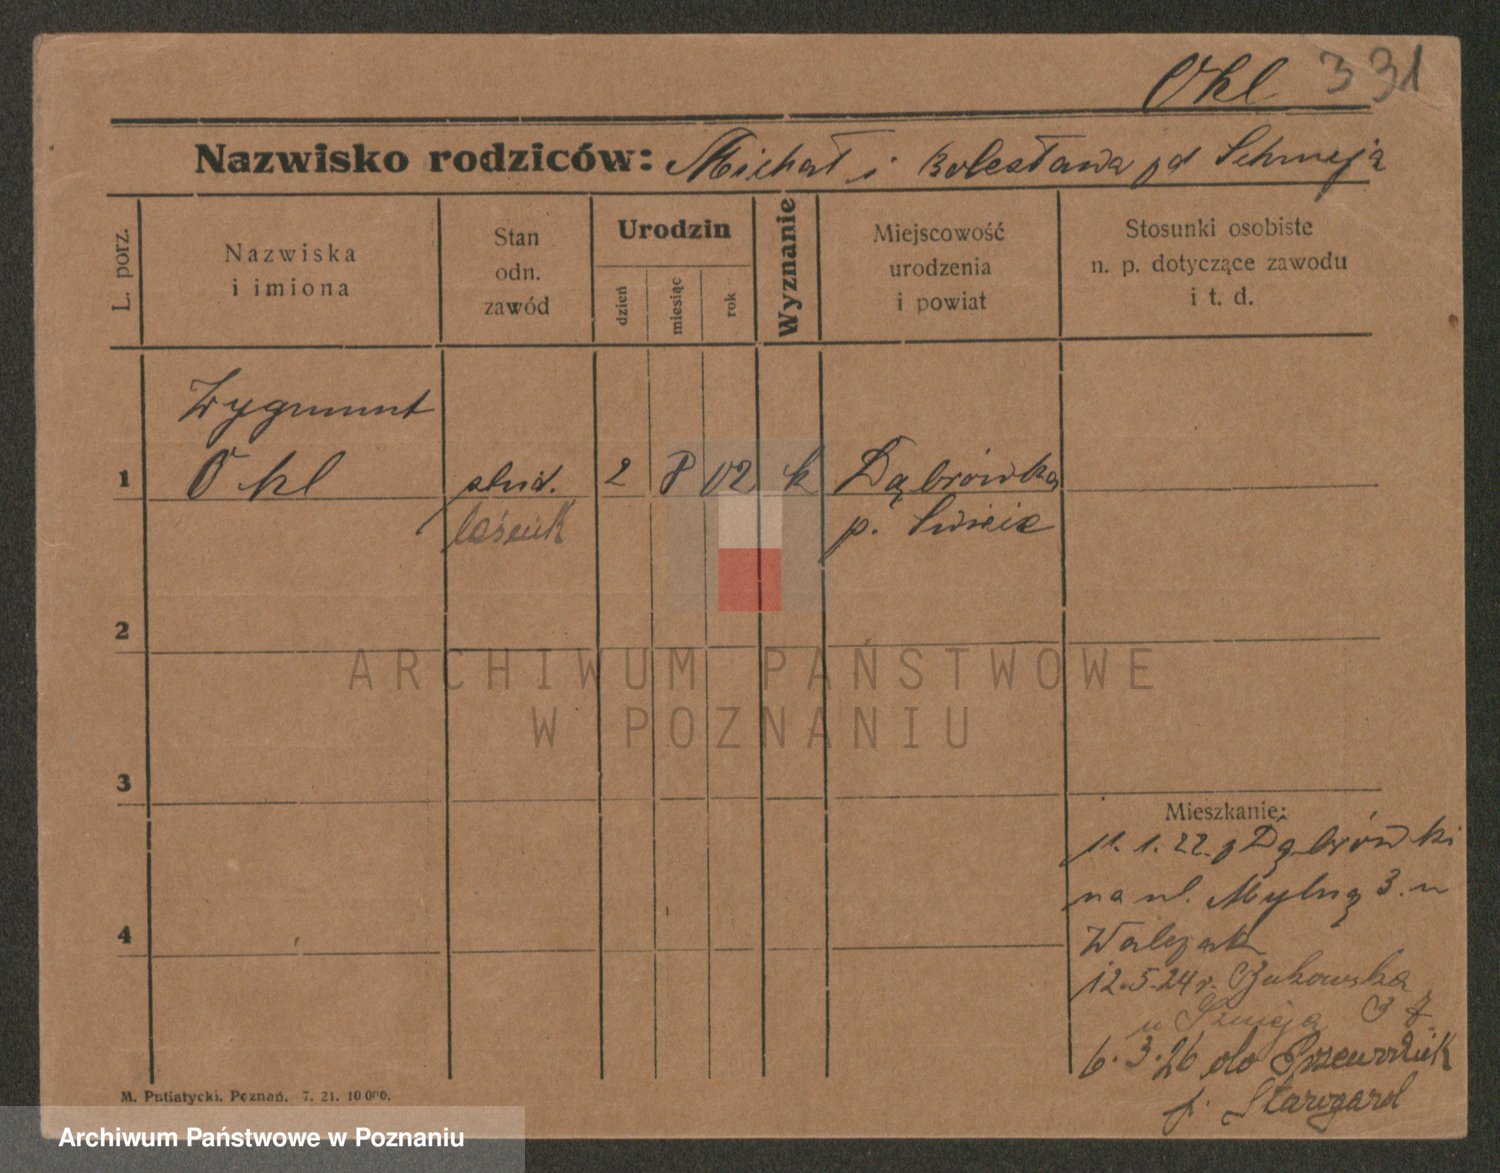 Okl 331
Nazwisko rodziców: Michał i Bolesława zd Schmeja
L. porz.
Nazwiska
i imiona
Stan
odn.
zawód
Urodzin
dzień
miesiąc
rok
Wyznanie
Miejscowość
urodzenia
i powiat
Stosunki osobiste
n. p. dotyczące zawodu
i t. d.
Zygmunt
1 Okl stud. 2 8 02 k Dąbrówka
p. Świecie
2
ARCHIWUM PAŃSTWOWE
W POZNANIU
3
Mieszkanie:
11. 1. 22. z Dąbrówki
na ul. Mylną 3. u
4 Walczak
12.5.24 r. Bukowska
u Szmeja
6.3.26 do
p. Starogard
M. Putiatycki. Poznań. 7. 21. 10 000.
Archiwum Państwowe w Poznaniu